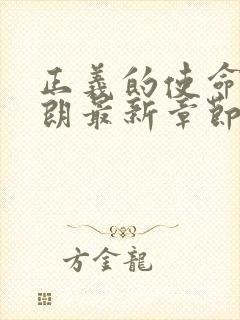 正義的使命
朗最新章節
方金龍